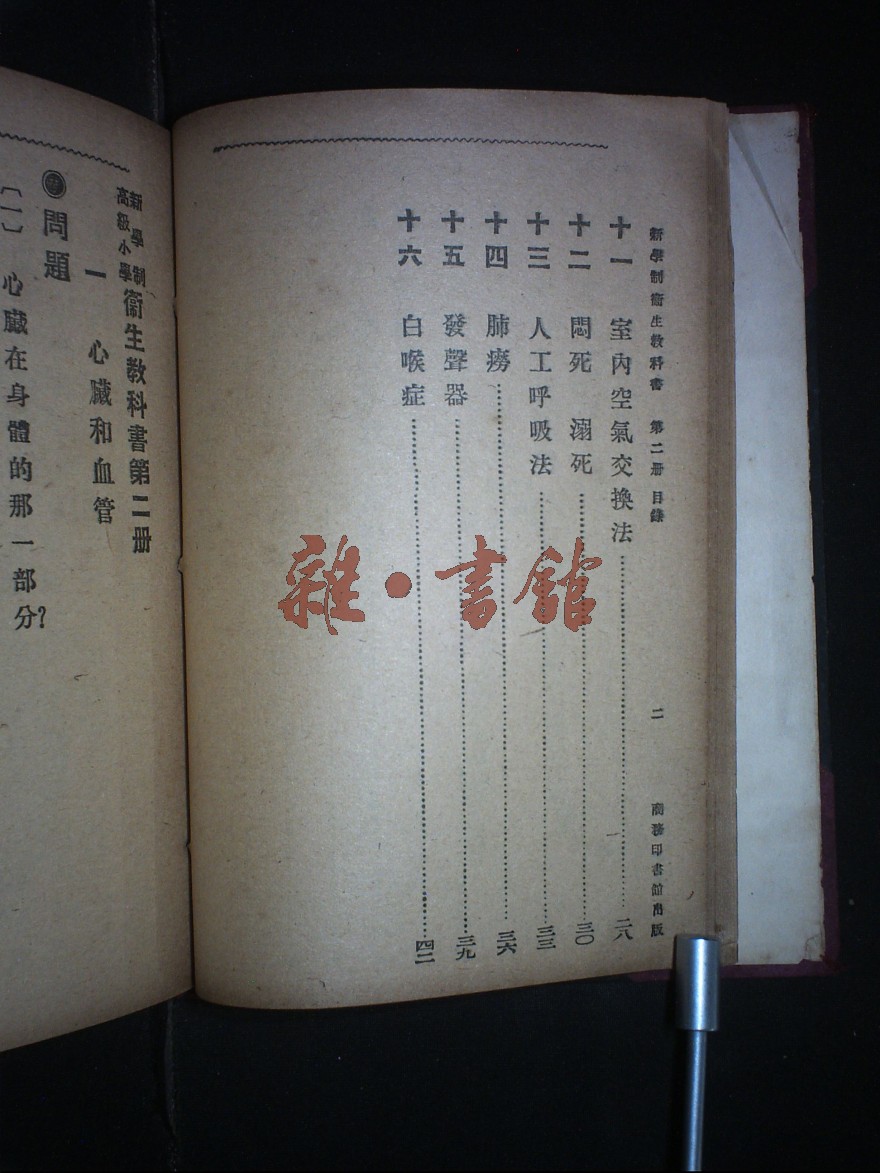 新學制衞生教科書 第二册 目錄 二 商務印書館出版
十一 室內空氣交換法 二八
十二 悶死 溺死 三〇
十三 人工呼吸法 三三
十四 肺癆 三六
十五 發聲器 三九
十六 白喉症 四二
新學制
高級小學
衞生教科書第二册
一 心臟和血管
問題
〔一〕心臟在身體的那一部分?
雜·書館